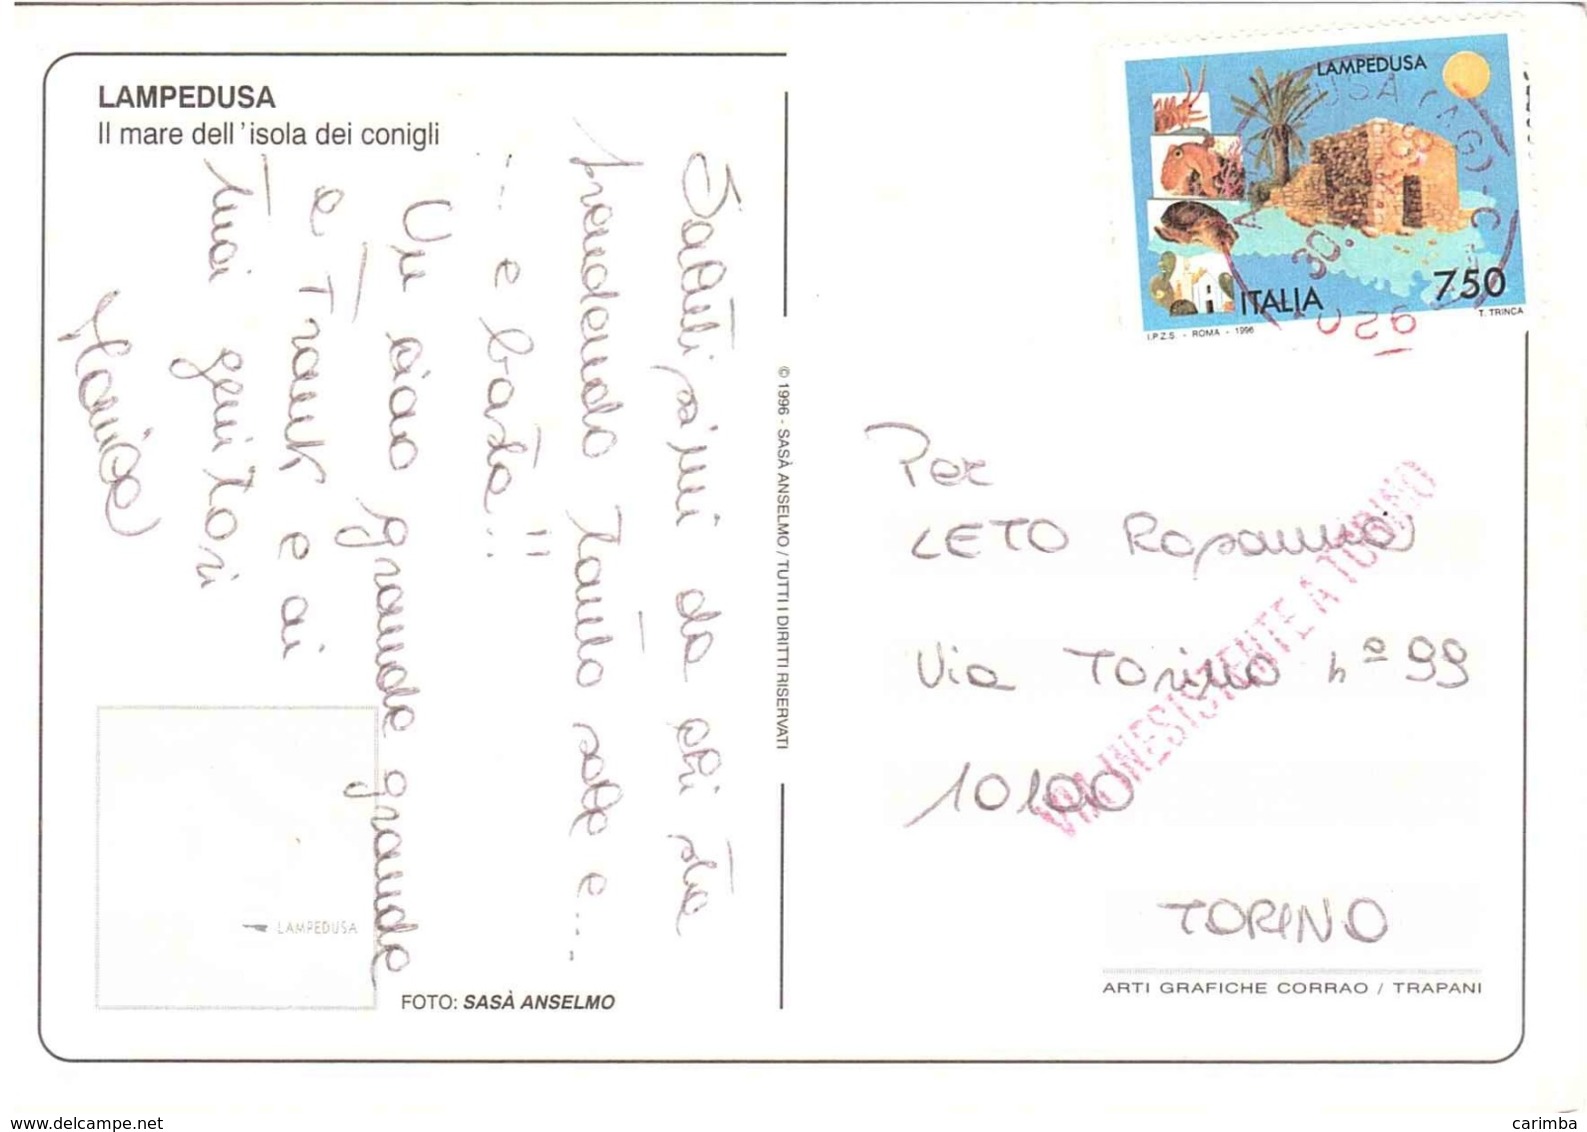 LAMPEDUSA
Il mare dell'isola dei conigli
Salutissimi da chi sta
prendendo tanto sole e....
... e basta!!
Un ciao grande grande
a Frank e ai
tuoi genitori
LAMPEDUSA
FOTO: SASÀ ANSELMO
© 1996 - SASÀ ANSELMO / TUTTI I DIRITTI RISERVATI
LAMPEDUSA
ITALIA
750
I.P.Z.S. - ROMA - 1996
T. TRINCA
USA (AG) - C
30.
Per
LETO Rosanna
Via Torino nº 99
10100
TORINO
VIA INESISTENTE A TORINO
ARTI GRAFICHE CORRAO / TRAPANI
delcampe.net
carimba